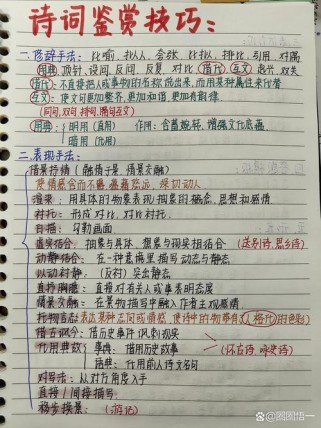 诗词鉴赏技巧:
一.修辞手法: 比喻, 拟人, 夸张, 比拟, 排比, 引用, 对偶
用典, 顶针, 设问, 反问, 反复, 对比, 借代, 互文, 起兴, 双关
借代: 不直接把人或事物的名称说出来, 而用某种属性来代替
互文: 使文句更加整齐, 更加和谐, 更加有韵律
(同句, 双句, 排句, 隔句互文)
用典: 明用 (直用) 作用: 含蓄婉转, 增强文化底蕴
暗用 (化用)
二.表现手法:
借景抒情 (融情于景, 情景交融)
用具体的物象表现抽象的概念, 思想和情感
衬托: 形成对比, 对比衬托
白描: 勾勒画面
虚实结合: 抽象与具体, 想象与现实相结合 (送别诗, 思乡诗)
动静结合: 在一种意境里描写动态与静态
以动衬静: (反衬) 突出静态
直抒胸臆: 直接对有关人或事表明态度
情景交融: 在景物描写中融入作者主观感情
托物言志: 表达某种志向或情感, 使诗中的物带有人格化的色彩
借古讽今: 借历史事件讽刺现实
化用典故 事典: 借用历史故事 (怀古诗, 咏史诗)
语典: 化用前人诗文名句
对写法: 从对方角度入手
直接/间接描写
移步换景: (游记)